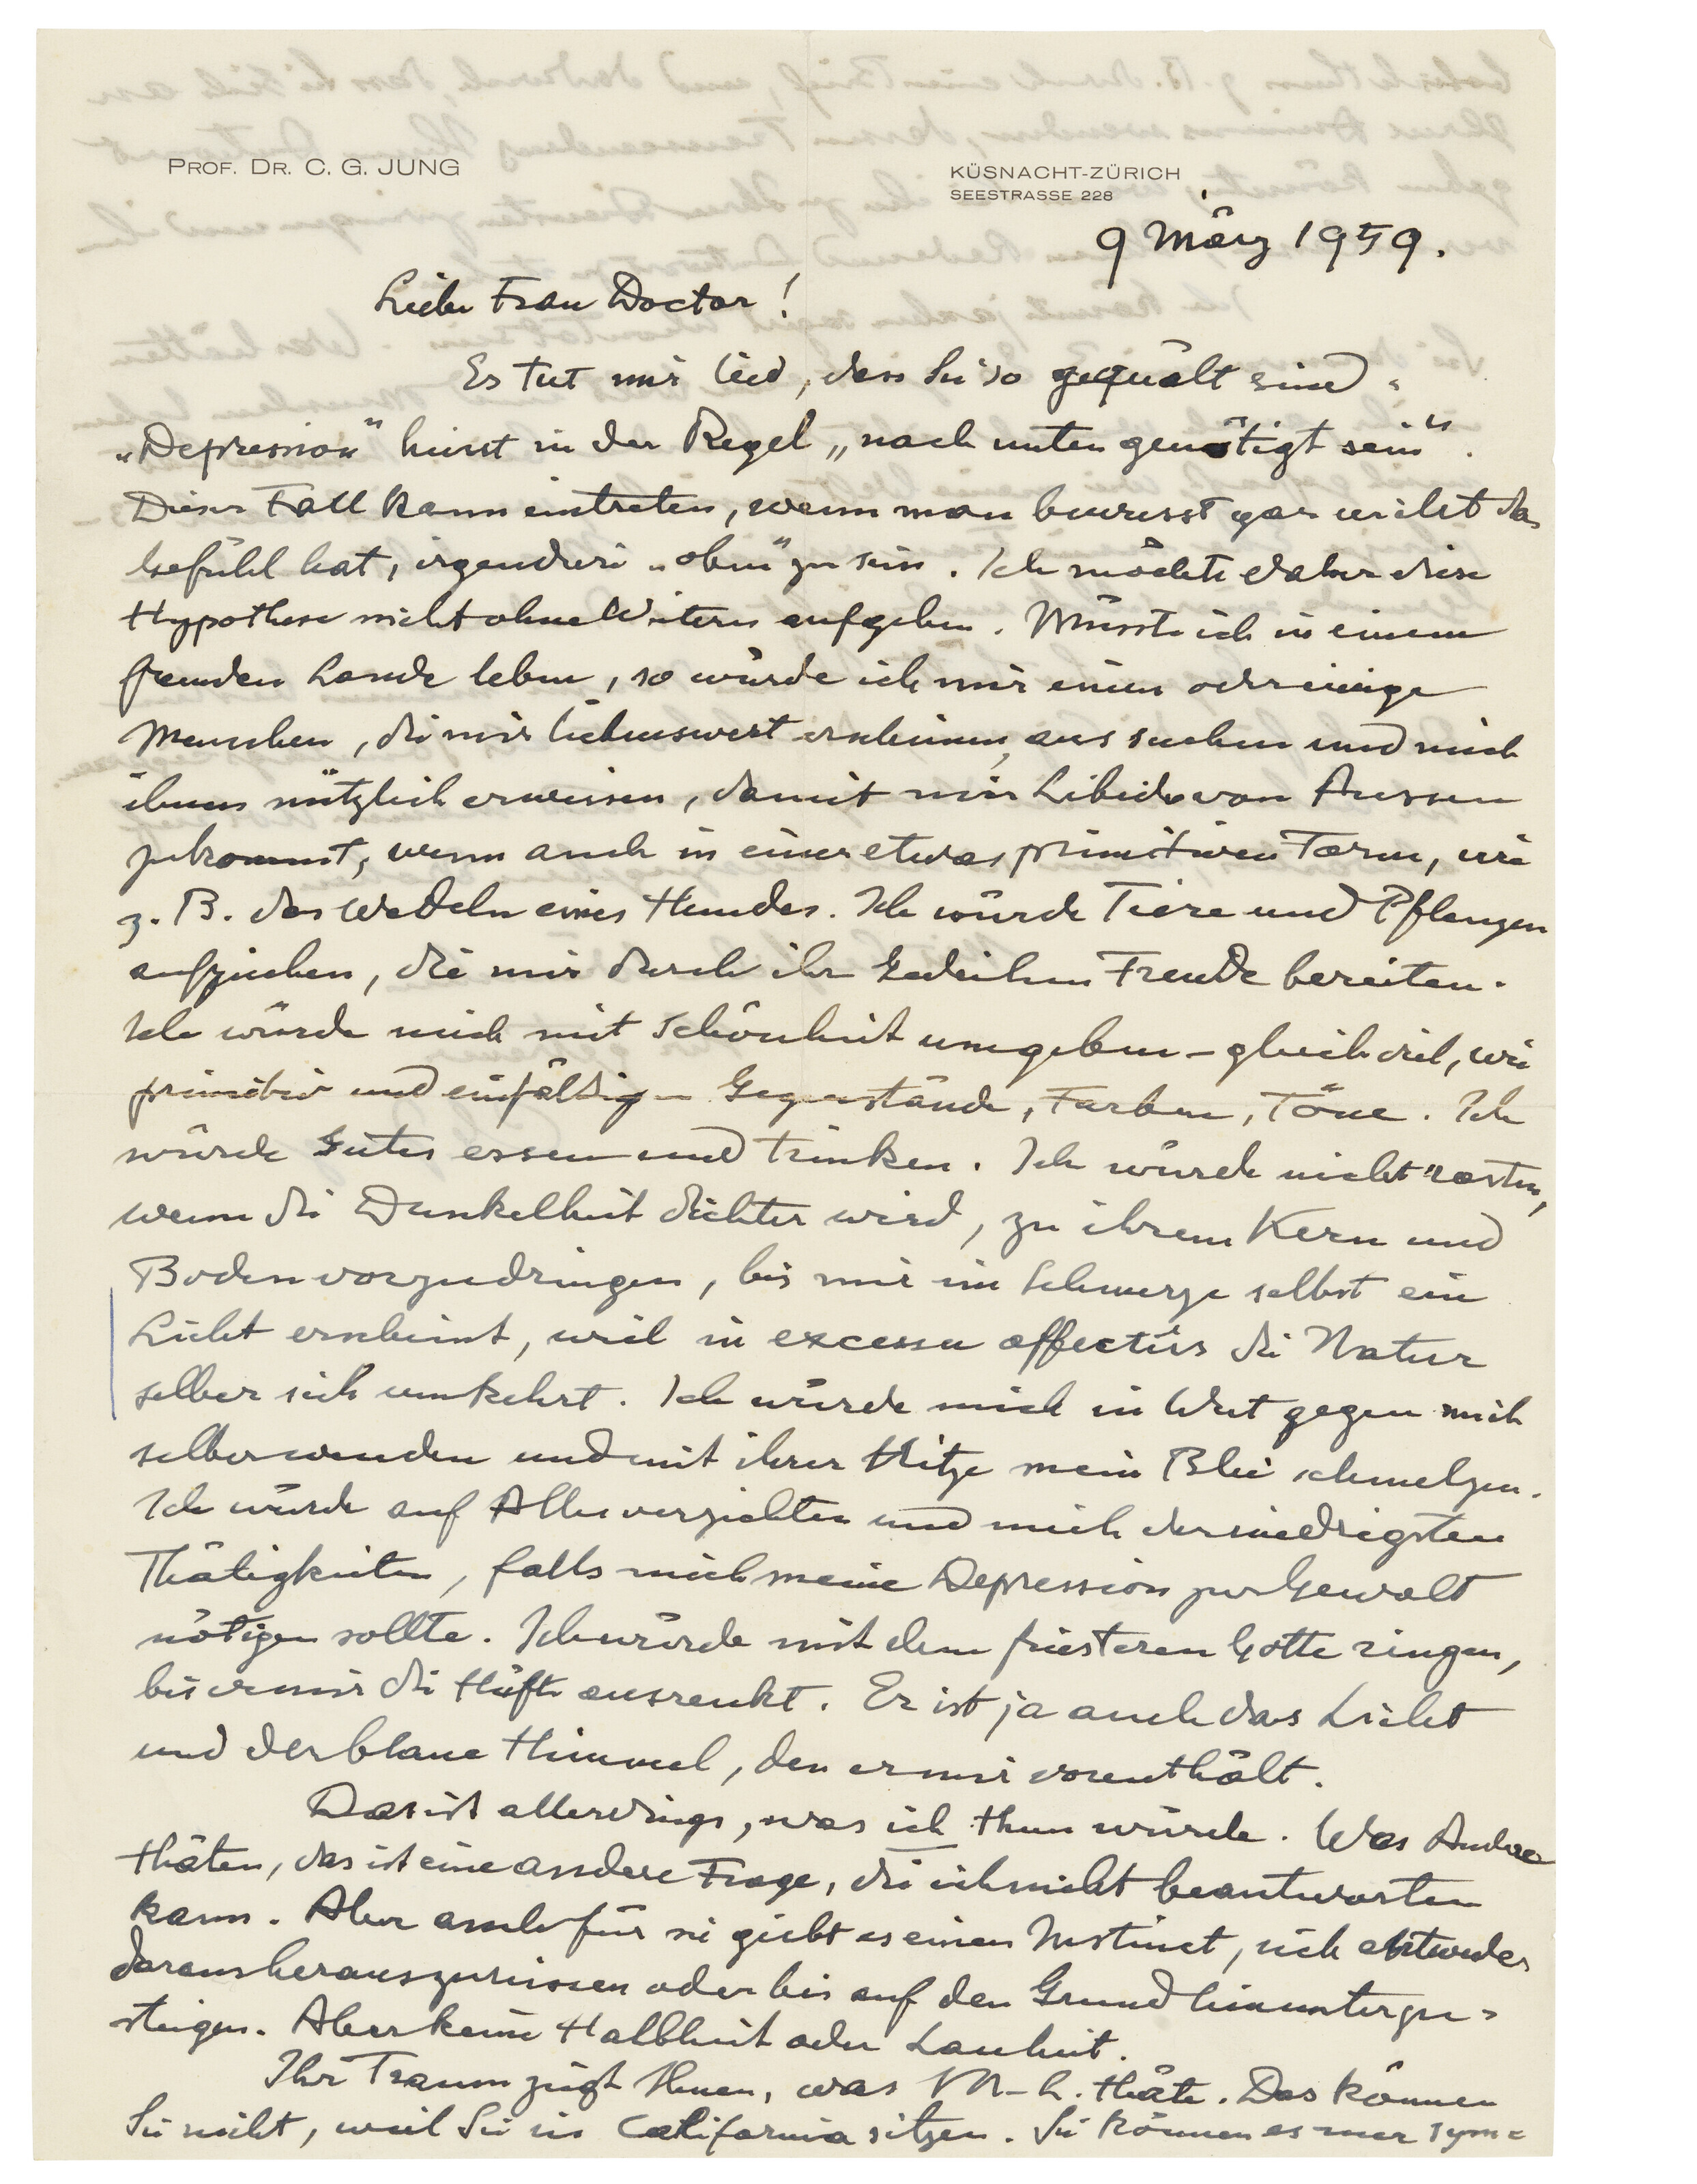 PROF. DR. C. G. JUNG
KÜSNACHT-ZÜRICH
SEESTRASSE 228
9 März 1959.
Liebe Frau Doctor!
Es tut mir leid, dass Sie so gequält sind.
„Depression" heisst in der Regel „nach unten genötigt sein".
Dieser Fall kann eintreten, wenn man bewusst gar nicht das
Gefühl hat, irgendwie „oben" zu sein. Ich möchte daher diese
Hypothese nicht ohne Weiteres aufgeben. Müsste ich in einem
fremden Lande leben, so würde ich mir einen oder einige
Menschen, die mir liebenswert erscheinen, aussuchen und mich
ihnen nützlich erweisen, damit mir Libido von Aussen
zukommt, wenn auch in einer etwas primitiven Form, wie
z. B. das Wedeln eines Hundes. Ich würde Tiere und Pflanzen
aufziehen, die mir durch ihr Gedeihen Freude bereiten.
Ich würde mich mit Schönheit umgeben – gleichviel, wie
primitiv und einfältig – Gegenstände, Farben, Töne. Ich
würde Gutes essen und trinken. Ich würde nicht rasten,
wenn die Dunkelheit dichter wird, zu ihrem Kern und
Boden vorzudringen, bis mir im Schmerze selbst ein
Licht erscheint, weil in excessu affectus die Natur
selber sich umkehrt. Ich würde mich in Wut gegen mich
selber wenden und mit ihrer Hitze mein Blei schmelzen.
Ich würde auf Alles verzichten und mich der niedrigsten
Thätigkeiten, falls mich meine Depression zur Gewalt
nötigen sollte. Ich würde mit dem finsteren Gotte ringen,
bis er mir die Hüfte ausrenkt. Er ist ja auch das Licht
und der blaue Himmel, den er mir vorenthält.
Das ist allerdings, was ich thun würde. Was Andre
thäten, das ist eine andere Frage, die ich nicht beantworten
kann. Aber auch für sie giebt es einen Instinct, sich entweder
daraus herauszureissen oder bis auf den Grund hinunterzu=
steigen. Aber keine Halbheit oder Lauheit.
Ihr Traum zeigt Ihnen, was M-L. thäte. Das können
Sie nicht, weil Sie in California sitzen. Sie können es nur sym=